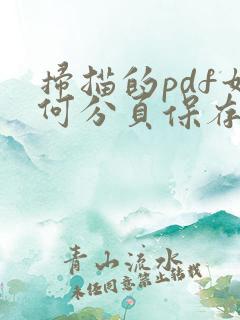 扫描的pdf如
何分页保存
青山流水
未经同意禁止转载